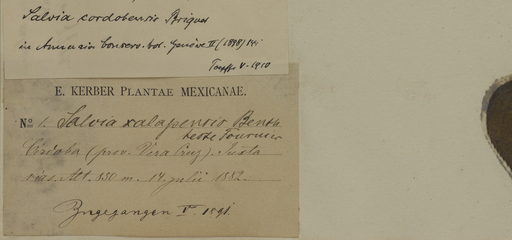 Salvia cordobensis Briquet
in Annuaire Conserv. bot. Genève II (1898) 141
V. 1910
E. KERBER PLANTAE MEXICANAE.
No 1. Salvia xalapensis Benth
teste Fournier
Cordoba (prov. Vera Cruz). Juxta
vias. Alt. 850 m. 14 julii 1882.
Eingegangen V 1891.